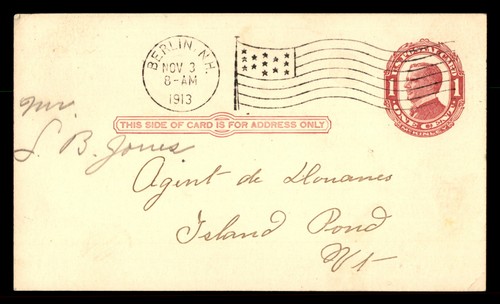 BERLIN, N.H.
NOV 3
8-AM
1913
1 1
ONE CENT
McKINLEY
THIS SIDE OF CARD IS FOR ADDRESS ONLY
Mr.
S. B. Jones
Agent de Douanes
Island Pond
Vt